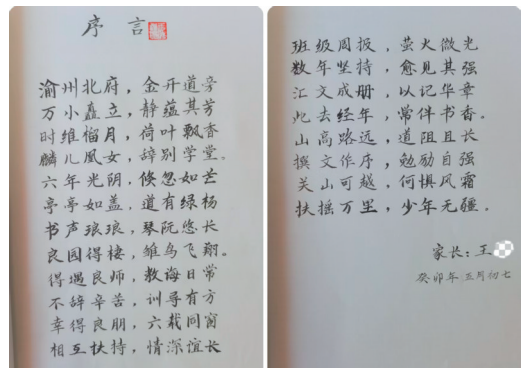 序言
渝州北府，金开道旁
万小矗立，静蕴其芳
时维榴月，荷叶飘香
麟儿凤女，辞别学堂。
六年光阴，倏忽如芒
亭亭如盖，道有绿杨
书声琅琅，琴阮悠长
良园得棲，雏鸟飞翔。
得遇良师，教诲日常
不辞辛苦，训导有方
幸得良朋，六载同窗
相互扶持，情深谊长
班级周报，萤火微光
数年坚持，愈见其强
汇文成册，以记华章
此去经年，常伴书香。
山高路远，道阻且长
撰文作序，勉励自强
关山可越，何惧风霜
扶摇万里，少年无疆.
家长：王
癸卯年五月初七